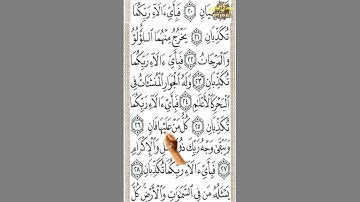 يَبْغِيَانِ ۝٢٠ فَبِأَيِّ ءَالَآءِ رَبِّكُمَا
تُكَذِّبَانِ ۝٢١ يَخْرُجُ مِنْهُمَا ٱللُّؤْلُؤُ
وَٱلْمَرْجَانُ ۝٢٢ فَبِأَيِّ ءَالَآءِ رَبِّكُمَا
تُكَذِّبَانِ ۝٢٣ وَلَهُ ٱلْجَوَارِ ٱلْمُنشَـَٔاتُ فِى
ٱلْبَحْرِ كَٱلْأَعْلَٰمِ ۝٢٤ فَبِأَيِّ ءَالَآءِ رَبِّكُمَا
تُكَذِّبَانِ ۝٢٥ كُلُّ مَنْ عَلَيْهَا فَانٍ ۝٢٦
وَيَبْقَىٰ وَجْهُ رَبِّكَ ذُو ٱلْجَلَٰلِ وَٱلْإِكْرَامِ
۝٢٧ فَبِأَيِّ ءَالَآءِ رَبِّكُمَا تُكَذِّبَانِ ۝٢٨
يَسْـَٔلُهُۥ مَن فِى ٱلسَّمَٰوَٰتِ وَٱلْأَرْضِ ۚ كُلَّ